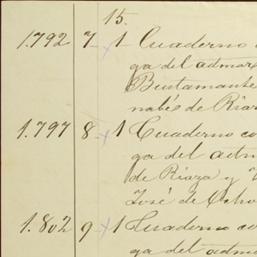 15.
1.792 7 1 Cuaderno co
ga del admor
Bustamante
nabé de Riaz
1.797 8 1 Cuaderno co
ga del adm
de Riaza y
José de Ocho
1.802 9 1 Cuaderno co
ga del admo